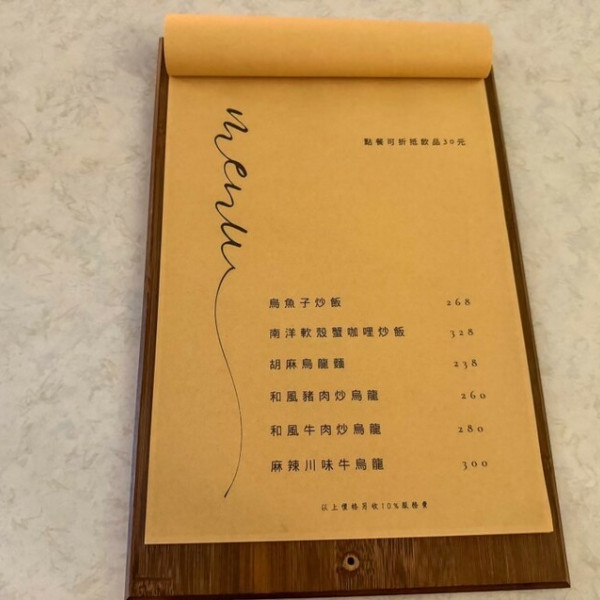 menu
點餐可折抵飲品30元
烏魚子炒飯 268
南洋軟殼蟹咖哩炒飯 328
胡麻烏龍麵 238
和風豬肉炒烏龍 260
和風牛肉炒烏龍 280
麻辣川味牛烏龍 300
以上價格另收10%服務費